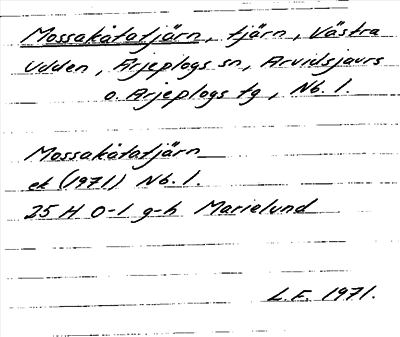 Mossakåtatjärn, tjärn, Västra
Udden, Arjeplogs sn, Arvidsjaurs
o. Arjeplogs tg, Nb. l.
Mossakåtatjärn
ek (1971) Nb. l.
25 H 0-1 g-h Marielund
L.F. 1971.